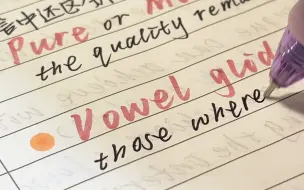 言中还区
Pure or M
the quality rema
Vowel glid
those where